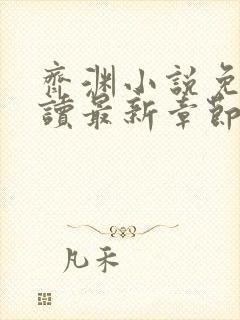 齊渊小說免
讀最新章節
凡禾